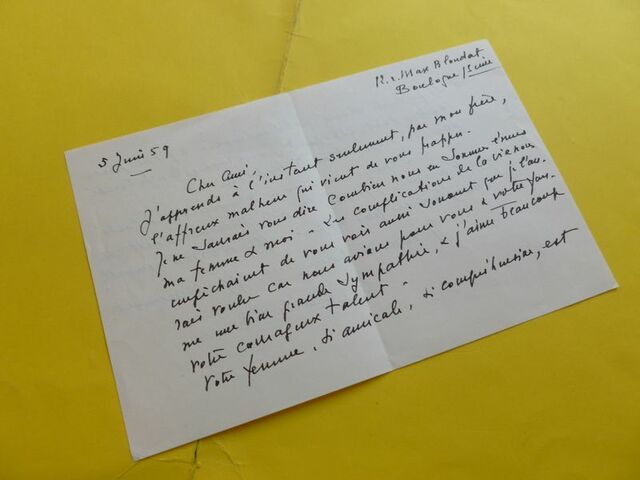 r. Max Blondat
Boulogne s/ Seine
5 Juin 59
Cher Ami,
J'apprends à l'instant seulement, par mon frère,
l'affreux malheur qui vient de vous frapper.
Je ne saurais vous dire combien nous en sommes émus
ma femme & moi - Les complications de la vie nous
empêchaient de vous voir aussi souvent que je l'au-
rais voulu car nous avions pour vous & votre fem-
me une bien grande sympathie, & j'aime beaucoup
votre courageux talent -
Votre femme, si amicale, si compréhensive, est